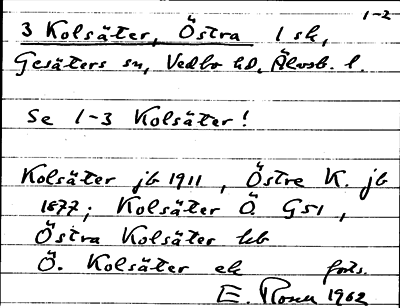 1-2
3 Kolsäter, Östra 1 sk,
Gesäters sn, Vedbo hd, Älvsb. l.
Se 1-3 Kolsäter!
Kolsäter jb 1911, Östre K. jb
1877; Kolsäter Ö. GS1,
Östra Kolsäter hb
Ö. Kolsäter ek forts.
E. Rosen 1962